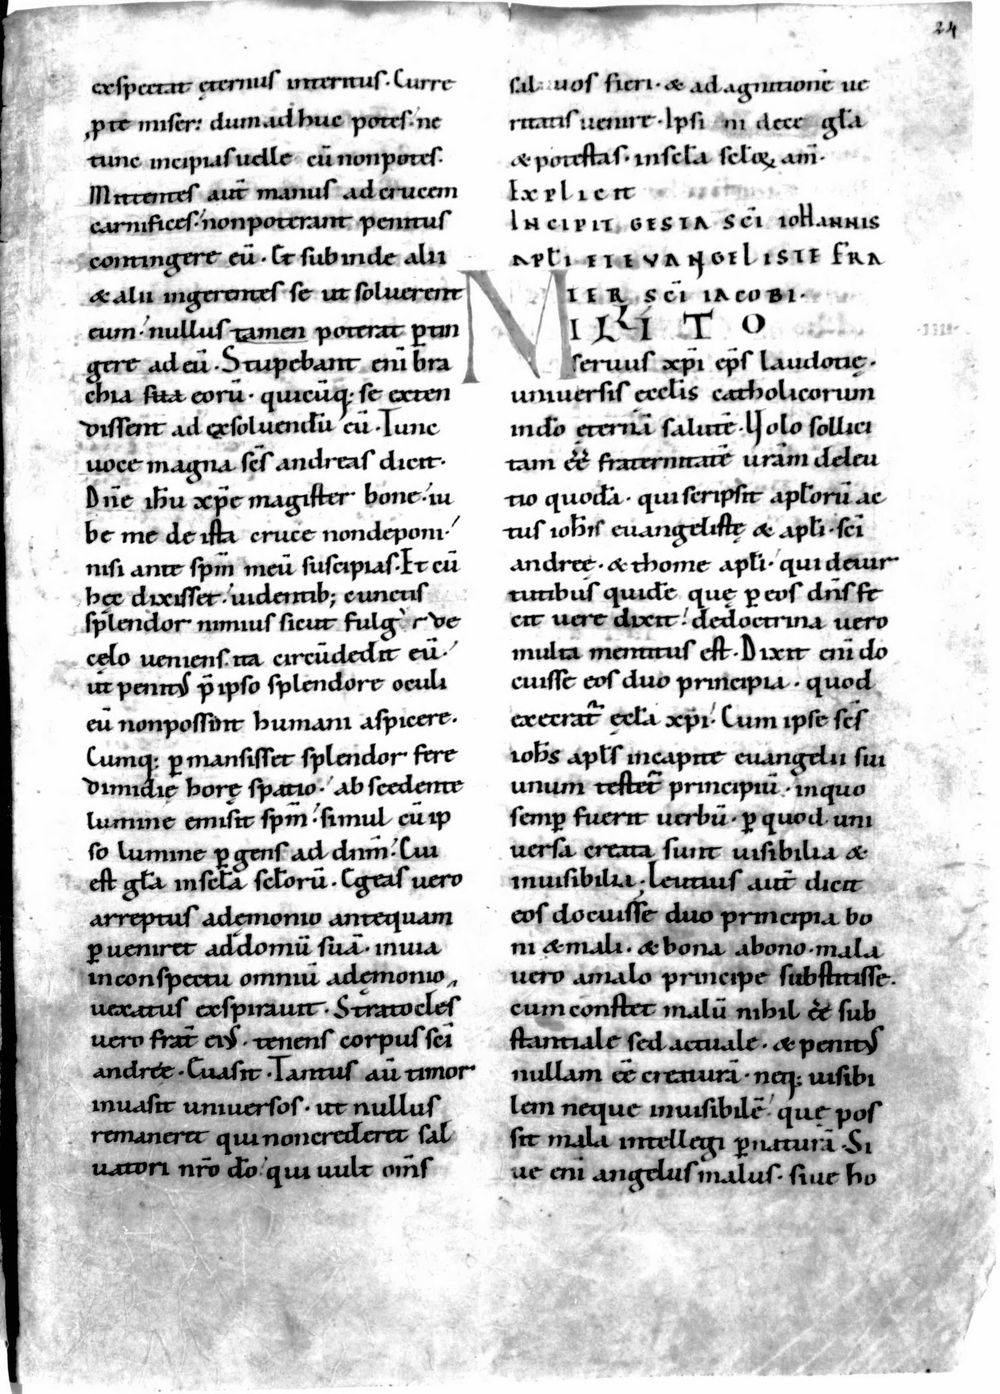 24
exspectat ęternus interitus. Curre
p te miser: dum ad huc potes. ne
tunc incipias uelle cū non potes.
Mittentes aut̄ manus ad crucem
carnifices. non poterant penitus
contingere eū. Et subinde alii
& alii ingerentes se ut soluerent
eum. nullus tamen poterat ptin
gere ad eū. Stupebant eni bra
chia sua eorū. quicūq; se exten
dissent ad exsoluendū eū. Tunc
uoce magna scs̄ andreas dicit.
Dn̄e ih̄u xp̄e magister bone. iu
be me de ista cruce non deponi.
nisi ante spm̄ meū suscipias. Et cū
hęc dixisset. uidentib; cunctis
splendor nimius sicut fulgur de
cęlo ueniens. ita circūdedit eū.
ut penitus p̄ ipso splendore oculi
eū non possint humani aspicere.
Cumq; pmansisset splendor fere
dimidię horę spatio. abscedente
lumine emisit spm̄. simul cū ip
so lumine pgens ad dnm̄. Cui
est gl̄a in scl̄a scl̄orū. Egeas uero
arreptus a demonio antequam
pueniret ad domū suā. in uia
in conspectu omniū a demonio
uexatus exspirauit. Stratocles
uero frat̄ eius. tenens corpus sc̄i
andreę. Euasit. Tantus aū timor
inuasit uniuersos. ut nullus
remaneret qui non crederet sal
uatori nr̄o do. qui uult om̄s
saluos fieri. & ad agnitionē ue
ritatis uenire. Ipsi
gl̄a
& potestas. in scl̄a scl̄oꝝ am̄.
Explicit
INCIPIT GESTA SCI IOHANNIS
APLI ET EVANGELISTE FRA
TER SCI IACOBI.
MILITO
seruus xp̄i ep̄s laudotię.
uniuersis ecclis catholicorum
in dn̄o ęternā salutē. Volo sollici
tam ēē fraternitatē urām de leu
tio quodā. qui scripsit apl̄orū ac
tus ioh̄is euangelistę & apl̄i. sc̄i
andreę. & thome apl̄i. qui de uir
tutibus quidē que p eos dn̄s fe
cit uere dixit. de doctrina uero
multa mentitus est. Dixit eni do
cuisse eos duo principia. quod
execrat̄ ęccl̄a xp̄i. Cum ipse scs̄
ioh̄s apl̄s in capite euangelii sui
unum testet̄ principiū. in quo
semp fuerit uerbū. p quod uni
uersa creata sunt uisibilia &
inuisibilia. Leutius aut̄ dicit
eos docuisse duo principia bo
ni & mali. & bona a bono. mala
uero a malo principe substitisse.
cum constet malū nihil ēē sub
stantiale sed actuale. & penitus
nullam ēē creaturā. neq; uisibi
lem neque inuisibilē. que pos
sit mala intellegi p naturā. Si
ue eni angelus malus. siue ho